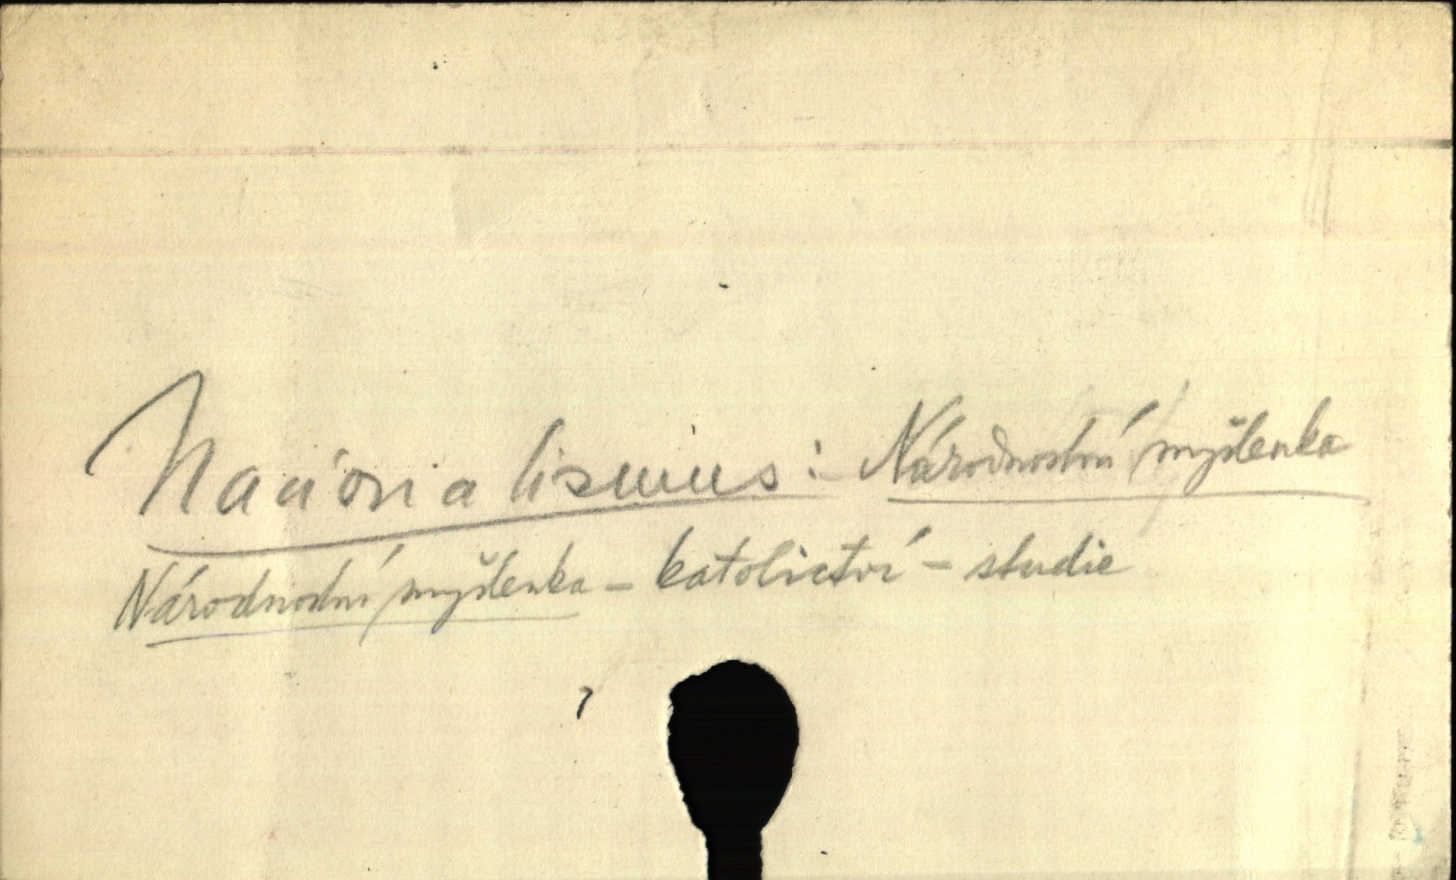 Nacionalismus: Národnostní myšlenka
Národnostní myšlenka - katolictví - studie